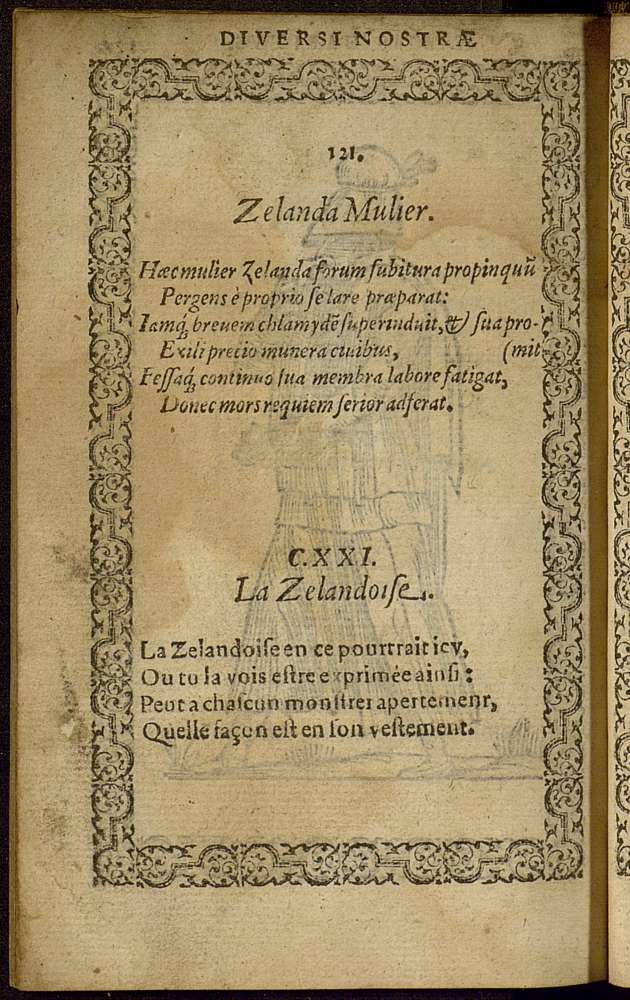 DIVERSI NOSTRÆ
121.
Zelanda Mulier.
Hæc mulier Zelanda forum subitura propinquū
Pergens è proprio se lare præparat:
Iamq́; brevem chlamydē superinduit, & sua pro-
Exili precio munera civibus, (mit
Fessaq́; continuo sua membra labore fatigat,
Donec mors requiem serior adferat.
C.XXI.
La Zelandoise.
La Zelandoise en ce pourtrait icy,
Ou tu la vois estre exprimée ainsi:
Peut a chascun monstrer apertement,
Quelle façon est en son vestement.